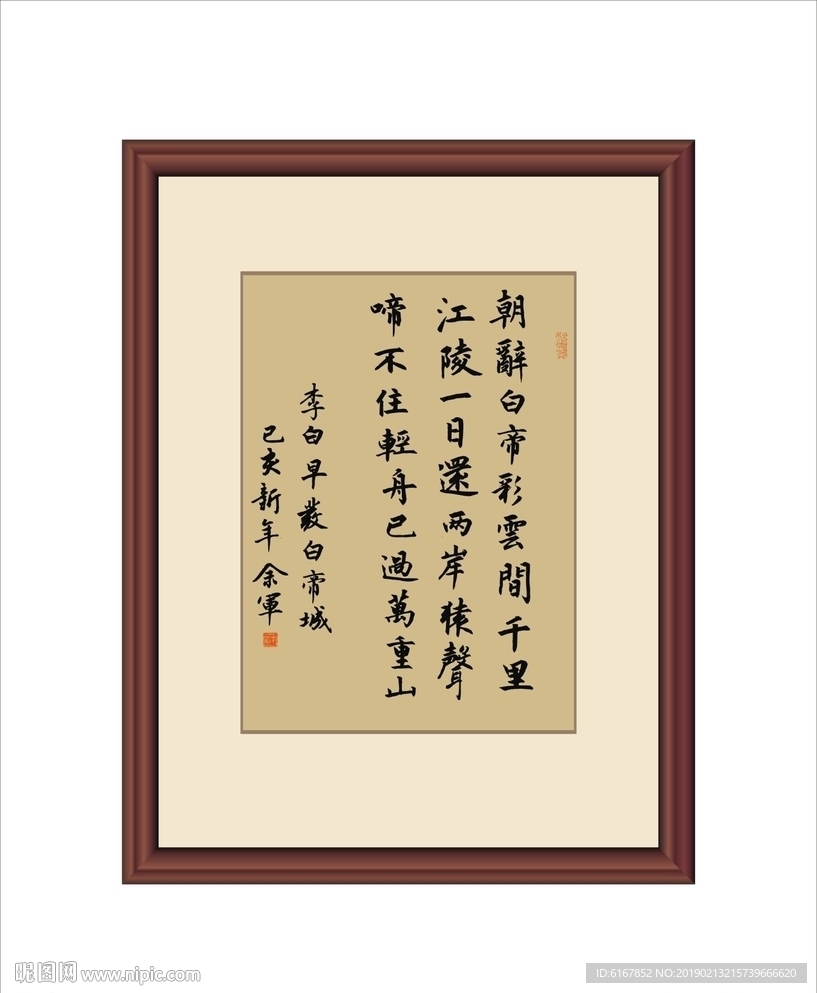 朝辭白帝彩雲間千里
江陵一日還兩岸猿聲
啼不住輕舟已過萬重山
李白早發白帝城
己亥新年余軍
昵图网 www.nipic.com
ID:6167852 NO:20190213215739666620